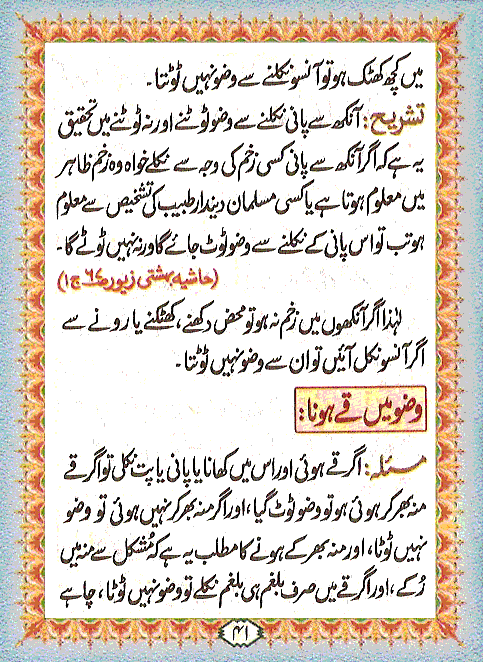 میں کچھ کھٹک ہو تو آنسو نکلنے سے وضو نہیں ٹوٹتا۔
تشریح: آنکھ سے پانی نکلنے سے وضو ٹوٹنے اور نہ ٹوٹنے میں تحقیق
یہ ہے کہ اگر آنکھ سے پانی کسی زخم کی وجہ سے نکلے خواہ وہ زخم ظاہر
میں معلوم ہوتا ہے یا کسی مسلمان دیندار طبیب کی تشخیص سے معلوم
ہو تب تو اس پانی کے نکلنے سے وضو ٹوٹ جائے گا ورنہ نہیں ٹوٹے گا۔
(حاشیہ بہشتی زیور ص۶۷ ج۱)
لہٰذا اگر آنکھوں میں زخم نہ ہو تو محض دکھنے، کھٹکنے یا رونے سے
اگر آنسو نکل آئیں تو ان سے وضو نہیں ٹوٹتا۔
وضو میں قے ہونا:
مسئلہ: اگر قے ہوئی اور اس میں کھانا یا پانی یا پت نکلی تو اگر قے
منہ بھر کر ہوئی ہو تو وضو ٹوٹ گیا، اور اگر منہ بھر کر نہیں ہوئی تو وضو
نہیں ٹوٹا، اور منہ بھر کے ہونے کا مطلب یہ ہے کہ مُشکل سے منہ میں
رُکے، اور اگر قے میں صرف بلغم ہی بلغم نکلے تو وضو نہیں ٹوٹا، چاہے
۴۱